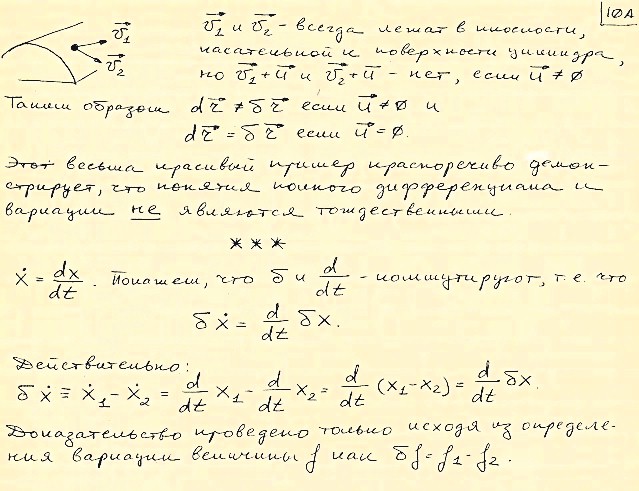 10A
v⃗₁ и v⃗₂ - всегда лежат в плоскости,
касательной к поверхности цилиндра,
но v⃗₁+u⃗ и v⃗₂+u⃗ - нет, если u⃗ ≠ 0
v⃗₁
v⃗₂
Таким образом dr⃗ ≠ δr⃗ если u⃗ ≠ 0 и
dr⃗ = δr⃗ если u⃗ = 0.
Этот весьма красивый пример красноречиво демон-
стрирует, что понятия полного дифференциала и
вариации не являются тождественными.
***
ẋ = dx/dt. Покажем, что δ и d/dt - коммутируют, т.е. что
δẋ = d/dt δx.
Действительно:
δẋ ≡ ẋ₁ - ẋ₂ = d/dt x₁ - d/dt x₂ = d/dt (x₁ - x₂) = d/dt δx.
Доказательство проведено только исходя из определе-
ния вариации величины f как δf = f₁ - f₂.